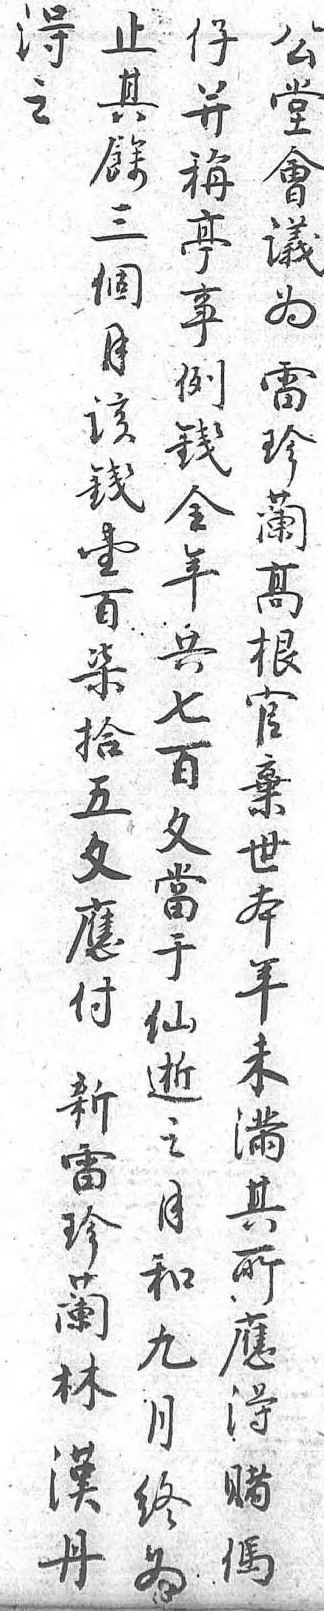 公堂會議为雷珍蘭高根官棄世本年未滿其所應得賭傌
仔并稱亭事例錢全年共七百文當于仙逝之月和九月終為
止其餘三個月該錢壹百柒拾五文應付新雷珍蘭林漢丹
得之